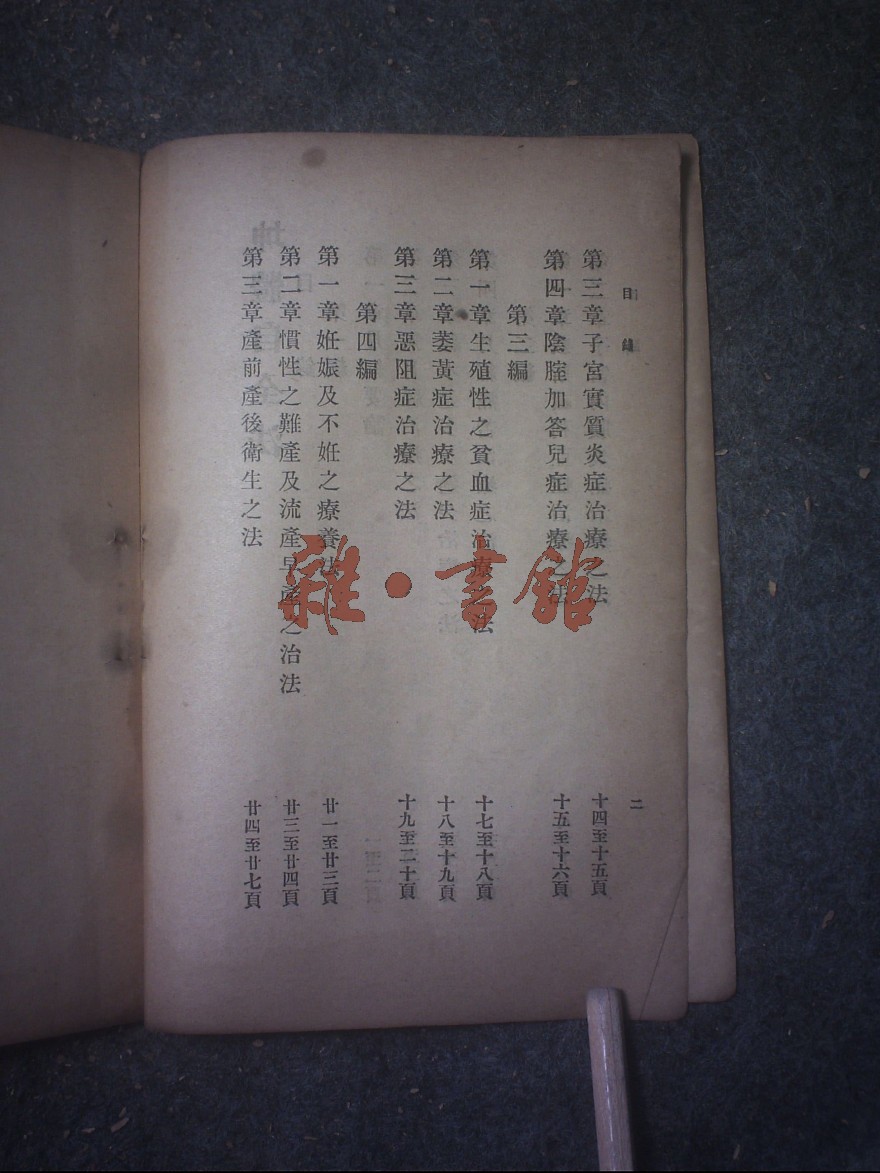 目錄
二
第三章子宮實質炎症治療之法 十四至十五頁
第四章陰腟加答兒症治療之法 十五至十六頁
第三編
第一章生殖性之貧血症治療之法 十七至十八頁
第二章萎黃症治療之法 十八至十九頁
第三章惡阻症治療之法 十九至二十頁
第四編
第一章妊娠及不妊之療養法 廿一至廿三頁
第二章慣性之難產及流產早產之治法 廿三至廿四頁
第三章產前產後衛生之法 廿四至廿七頁
雜·書館